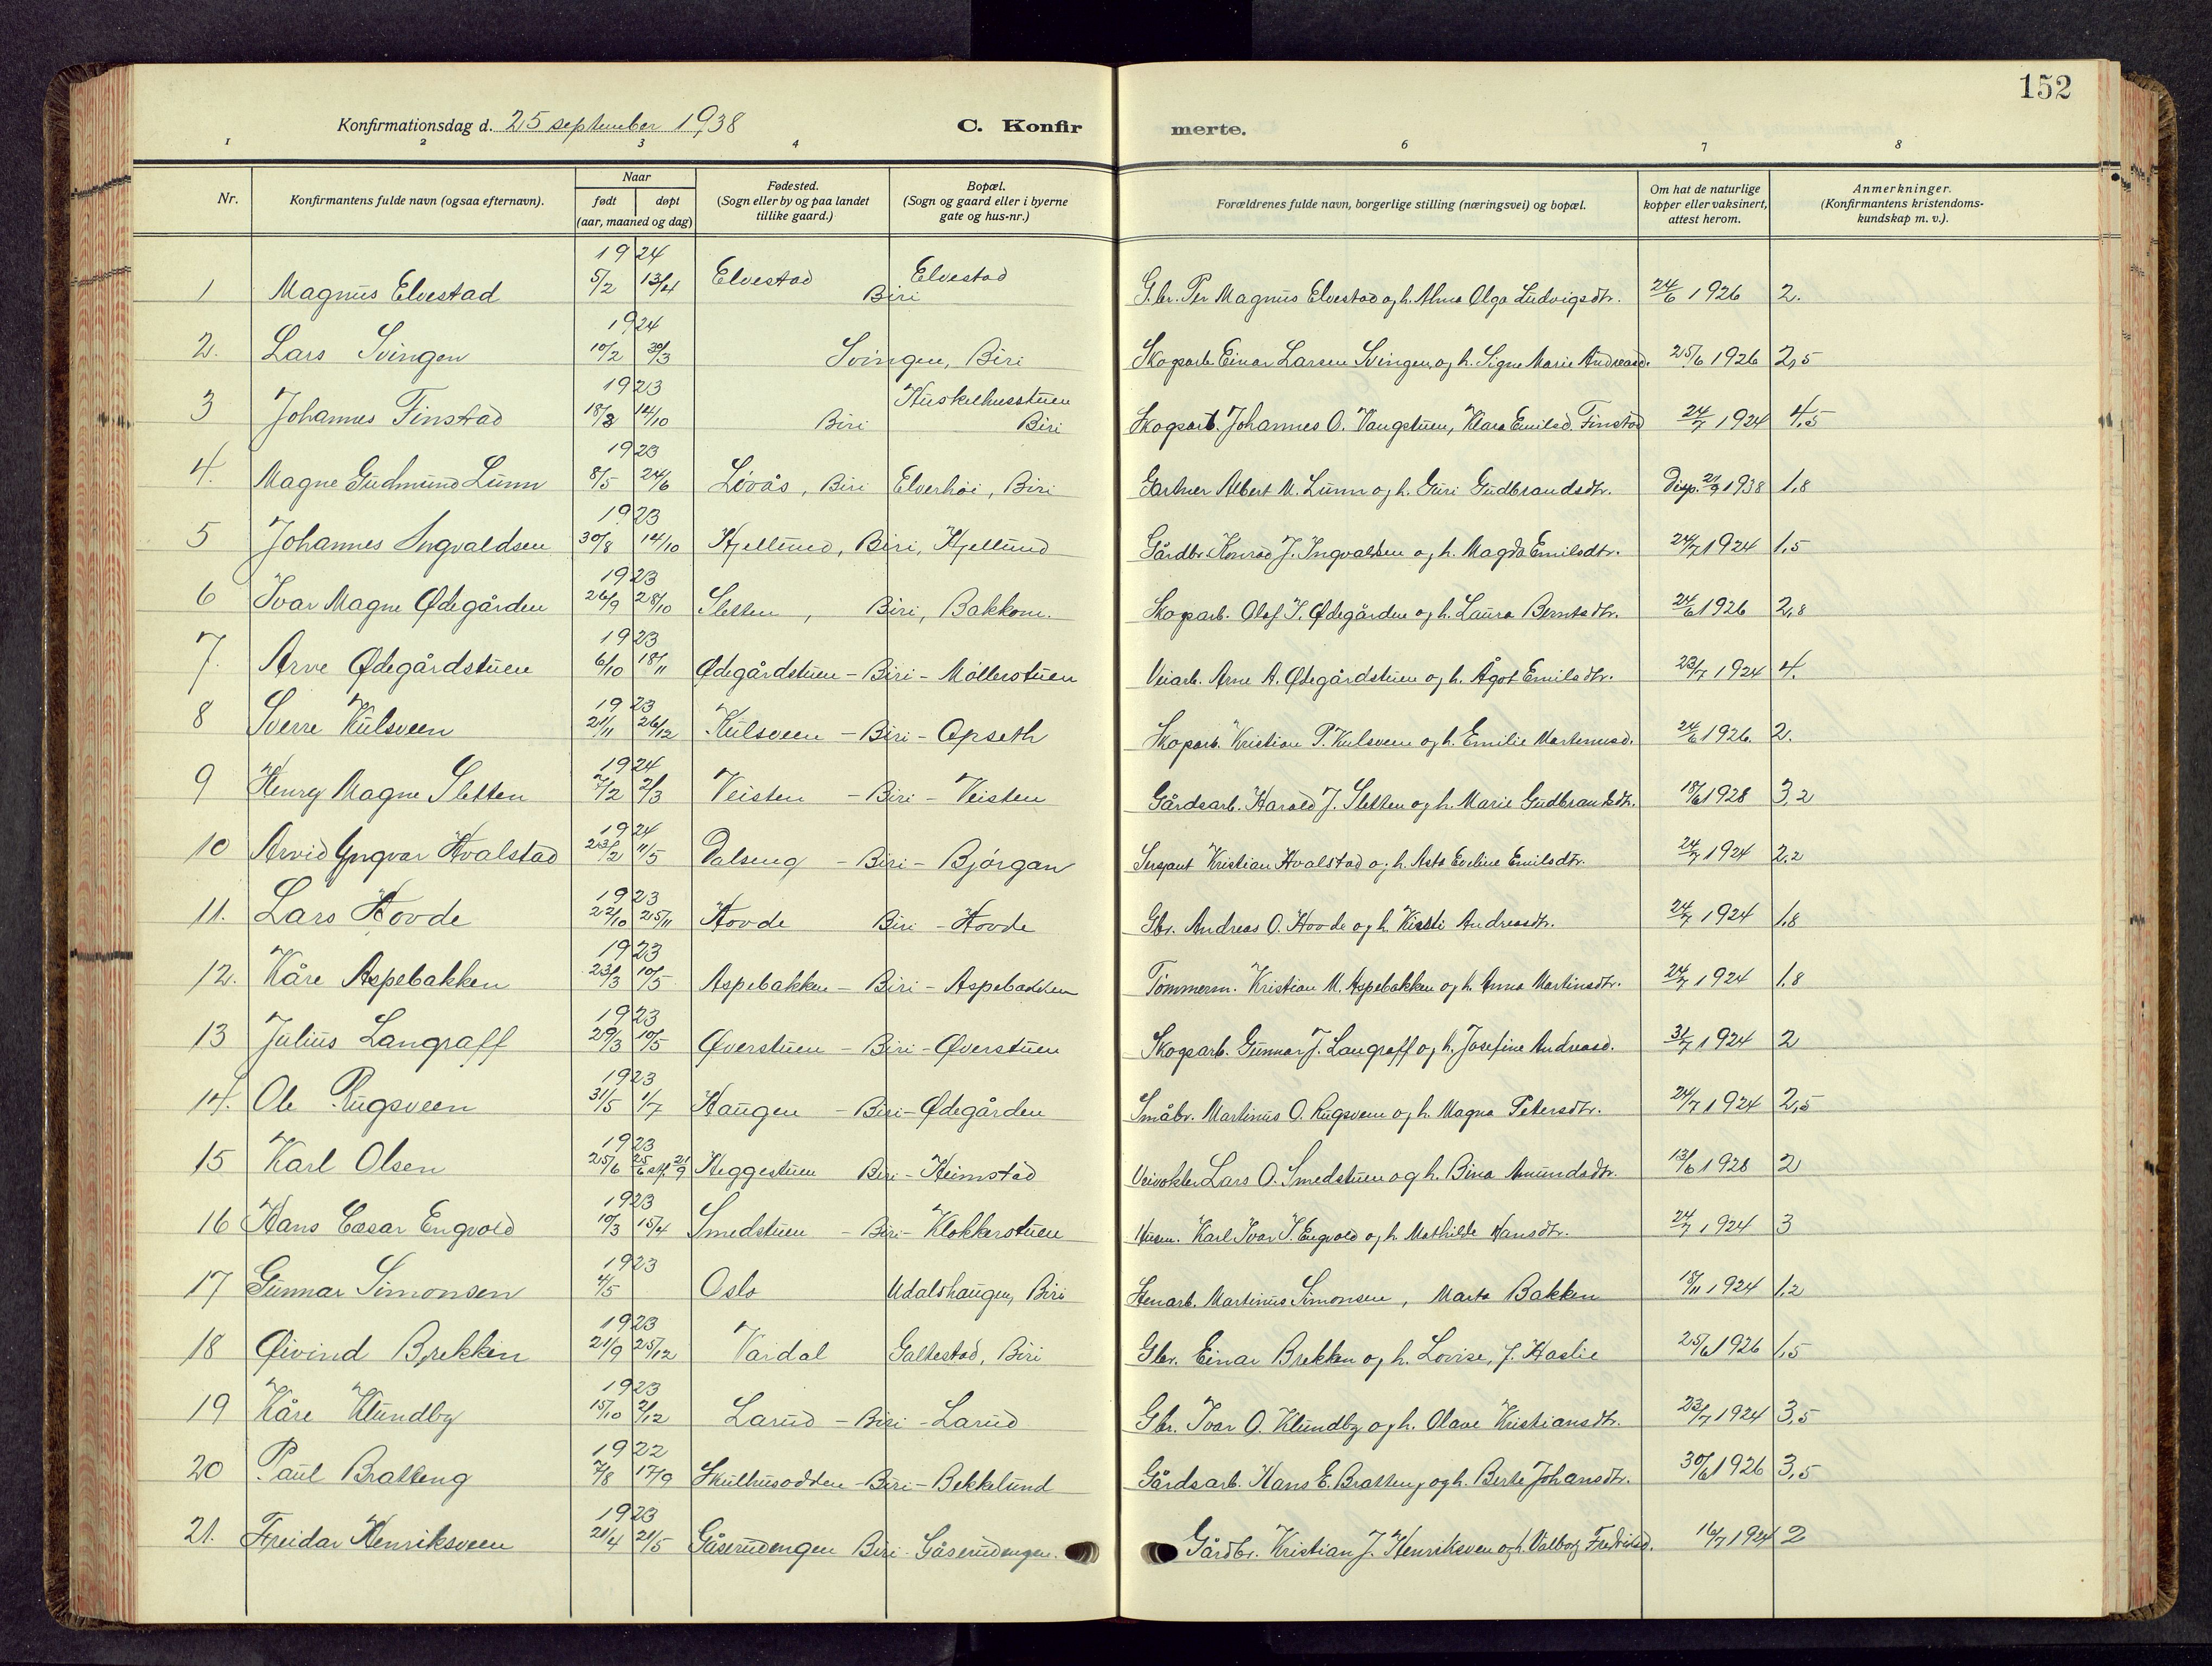 152
Konfirmationsdag d. 25 september 1938 C. Konfirmerte.
1 2 3 4 6 7 8
Nr. Konfirmantens fulde navn (ogsaa efternavn). Naar født døpt (aar, maaned og dag) Fødested. (Sogn eller by og paa landet tillike gaard.) Bopæl. (Sogn og gaard eller i byerne gate og hus-nr.) Forældrenes fulde navn, borgerlige stilling (næringsvei) og bopæl. Om hat de naturlige kopper eller vaksinert, attest herom. Anmerkninger. (Konfirmantens kristendoms- kundskap m. v.).
1 Magnus Elvestad 1924 5/2 13/4 Elvestad Biri Elvestad G.br. Per Magnus Elvestad og h. Alma Olga Ludvigsdtr. 24/6 1926 2.
2. Lars Svingen 1924 10/2 30/3 Svingen, Biri Skogsarb. Einar Larsen Svingen og h. Signe Marie Andreasd. 25/6 1926 2,5
3 Johannes Finstad 1923 18/8 14/10 Biri Huskelhusstuen Biri Skogsarb. Johannes O. Vangstuen, Klara Emilsd. Finstad 24/7 1924 4,5
4. Magne Gudmund Lunn 1923 8/5 24/6 Løvås, Biri Elverhøi, Biri Gartner Albert M. Lunn og h. Guri Gudbrandsdtr. Disp. 21/9 1938 1,8
5 Johannes Ingvaldsen 1923 30/8 14/10 Hjellund, Biri, Hjellund Gårdbr. Konrad J. Ingvaldsen og h. Magda Emilsdtr. 24/7 1924 1,5
6 Ivar Magne Ødegården 1923 26/9 28/10 Sletten, Biri, Bakkom. Skogarb. Olaf I. Ødegården og h. Laura Berntsdtr. 24/6 1926 2,8
7. Arve Ødegårdstuen 1923 6/10 18/11 Ødegårdstuen - Biri - Møllerstuen Veiarb. Arne A. Ødegårdstuen og h. Ågot Emilsdtr. 23/7 1924 4.
8 Sverre Kulsveen 1923 21/11 26/12 Kulsveen - Biri - Opseth Skogarb. Kristian P. Kulsveen og h. Emilie Martinusd. 24/6 1926. 2.
9 Henry Magne Sletten 1924 7/2 2/3 Veisten - Biri - Veisten Gårdsarb. Harald J. Sletten og h. Marie Gudbrandsdtr. 18/6 1928 3,2
10 Arvid Yngvar Hvalstad 1924 23/2 11/5 Dalseng - Biri - Bjørgan Sersjant Kristian Hvalstad og h. Asta Eveline Emilsdtr. 24/7 1924 2,2
11. Lars Hovde 1923 22/10 25/11 Hovde Biri - Hovde Gbr. Andreas O. Hovde og h. Kirsti Andreasdtr. 24/7 1924 1,8
12. Kåre Aspebakken 1923 23/3 10/5 Aspebakken - Biri - Aspebakken Tømmerm. Kristian M. Aspebakken og h. Anna Martinsdtr. 24/7 1924 1,8
13 Julius Langraff 1923 29/3 10/5 Øverstuen - Biri - Øverstuen Skogsarb. Gunnar J. Langraff og h. Josefine Andreasd. 31/7 1924 2
14. Ole Rugsveen 1923 31/5 1/7 Haugen - Biri - Ødegården Småbr. Martinus O. Rugsveen og h. Magna Petersdtr. 24/7 1924 2,5
15 Karl Olsen 1923 25/6 Heggestuen Biri - Heimstad Veivokter Lars O. Smedstuen og h. Bina Amundsdtr. 13/6 1928 2
16 Hans Cæsar Engvold 1923 10/3 15/4 Smedstuen - Biri - Klokkerstuen Karl Ivar I. Engvold og h. Mathilde Hansdtr. 24/7 1924 3
17 Gunnar Simonsen 1923 4/5 Oslo Udalshaugen, Biri Stenarb. Martinus Simonsen, Marta Bakken 18/11 1924 1,2
18 Øivind Brekken 1923 21/9 25/12 Vardal Galtestad, Biri Gbr. Einar Brekken og h. Lovise, f. Haslie 25/6 1926 1,5
19 Kåre Klundby 1923 15/10 2/12 Larud - Biri - Larud Gbr. Ivar O. Klundby og h. Olave Kristiansdtr. 23/7 1924 3,5
20 Paul Bratteng 1922 7/8 17/9 Skulhusodden - Biri - Bekkelund Gårdsarb. Hans E. Bratteng og h. Berte Johansdtr. 30/6 1926 3,5
21. Freidar Henriksveen 1923 21/4 21/5 Gåserudengen Biri - Gåserudengen. Gårdbr. Kristian J. Henriksveen og h. Valborg Fredriksd. 16/7 1924 2